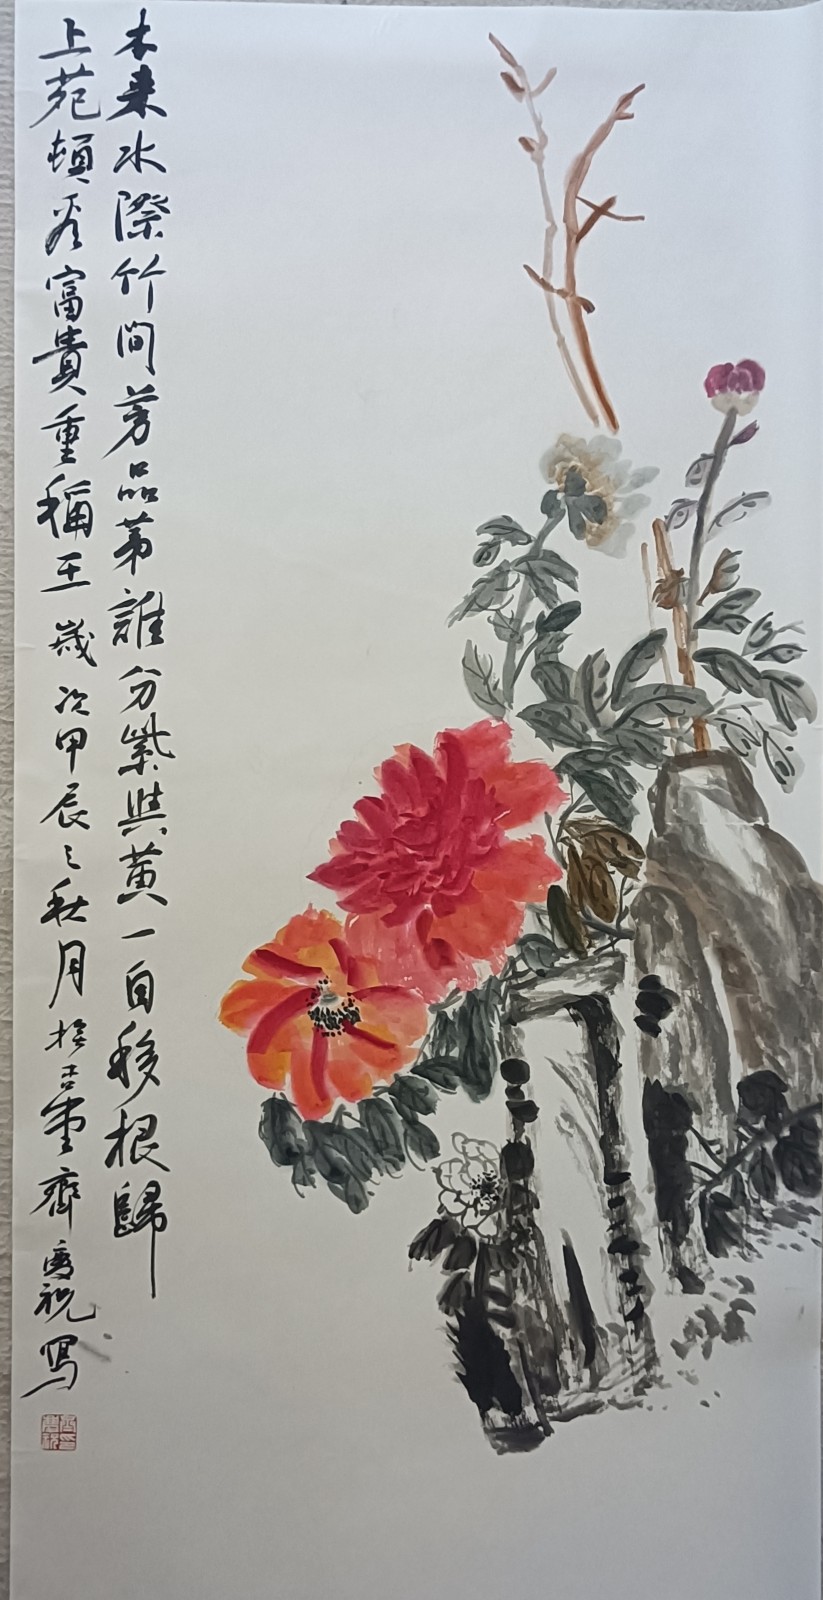 本来水際竹間芳品第誰分紫與黃一自移根歸
上苑頓富貴重稱王歲次甲辰之秋月於齊祝寫